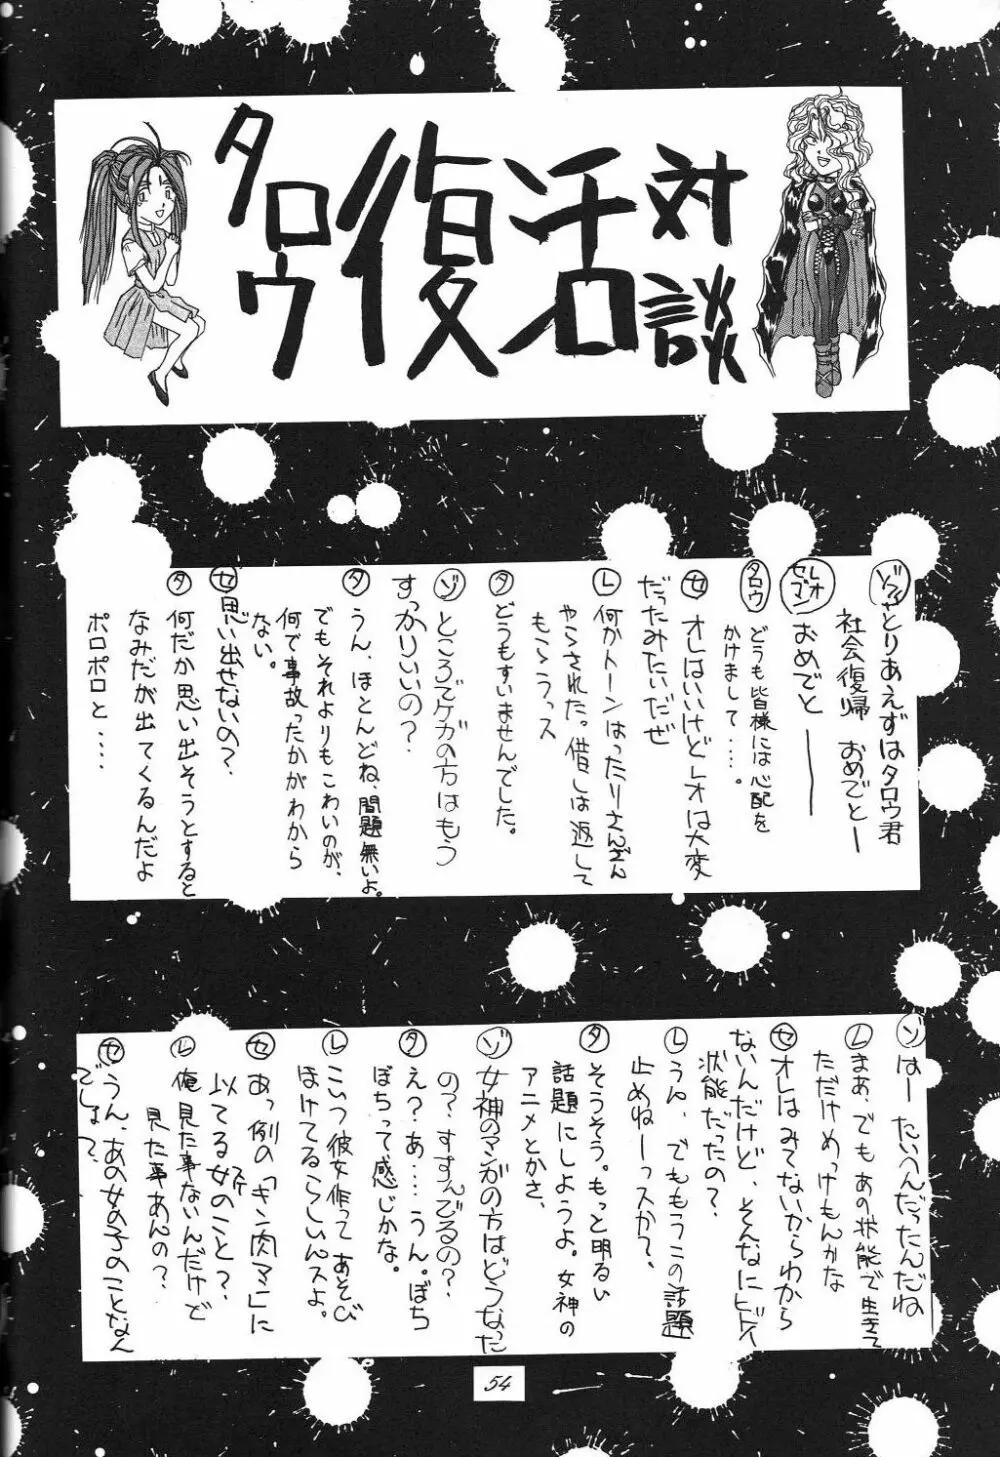 タロウ復活対談
ゾ とりあえずはタロウ君
社会復帰 おめでとー
レオ セブマン おめでとーーー
タロウ どうも皆様には心配を
かけまして・・・・。
セ オレはいいけどレオは大変
だったみたいだぜ
レ 何かトーンはったりさんざん
やらされた。借しは返して
もらうっス
タ どうもすいませんでした。
ゾ ところでケガの方はもう
すっかりいいの?
タ うん、ほとんどね、問題無いよ。
でもそれよりもこわいのが、
何で事故ったかがわから
ない。
セ 思い出せないの?
タ 何だか思い出そうとすると
なみだが出てくるんだよ
ポロポロと・・・・
ゾ はーたいへんだったんだね
レ まあ、でもあの状態で生きて
ただけめっけもんかな
セ オレはみてないからわから
ないんだけど、そんなにヒドイ
状態だったの?
レ うん、でももうこの話題
止めねーっスか?
タ そうそう。もっと明るい
話題にしようよ。女神の
アニメとかさ、
ゾ 女神のマンガの方はどうなった
の?すすんでるの?
タ え?あ・・・・うん。ぼち
ぼちって感じかな。
レ こいつ彼女作って あそび
ほけてるらしいんスよ。
セ あっ例の「キン肉マン」に
以てる女のこと?
レ 俺見た事ないんだけど
見た事あんの?
セ うん、あの女の子のことなん
でしょ?
54